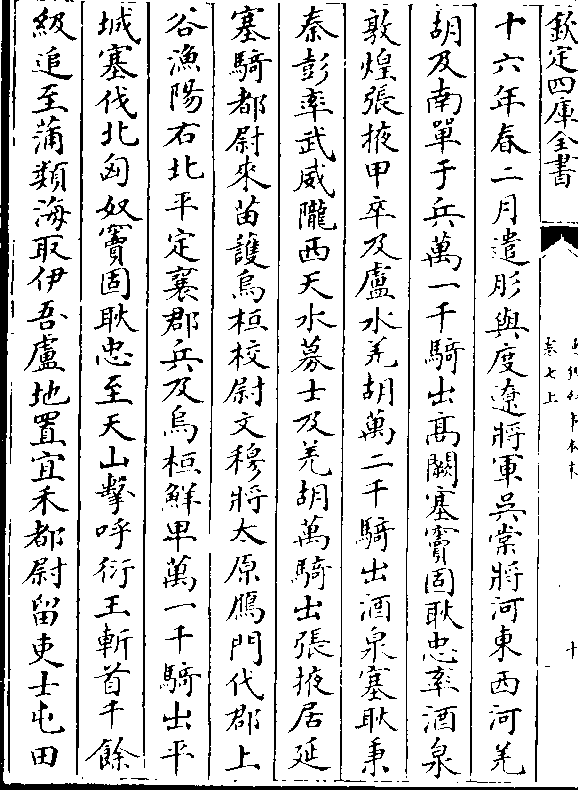 欽定四庫全書
卷七上
十
十六年春二月遣肜與度遼將軍吳棠將河東西河羌
胡及南單于兵萬一千騎出髙闕塞竇固耿忠率酒泉
敦煌張掖甲卒及盧水羌胡萬二千騎出酒泉塞耿秉
秦彭率武威隴西天水募士及羌胡萬騎出張掖居延
塞騎都尉來苗護烏桓校尉文穆將太原鴈門代郡上
谷漁陽右北平定襄郡兵及烏桓鮮卑萬一千騎出平
城塞伐北匈奴竇固耿忠至天山擊呼衍王斬首千餘
級追至蒲類海取伊吾盧地置宜禾都尉留吏士屯田